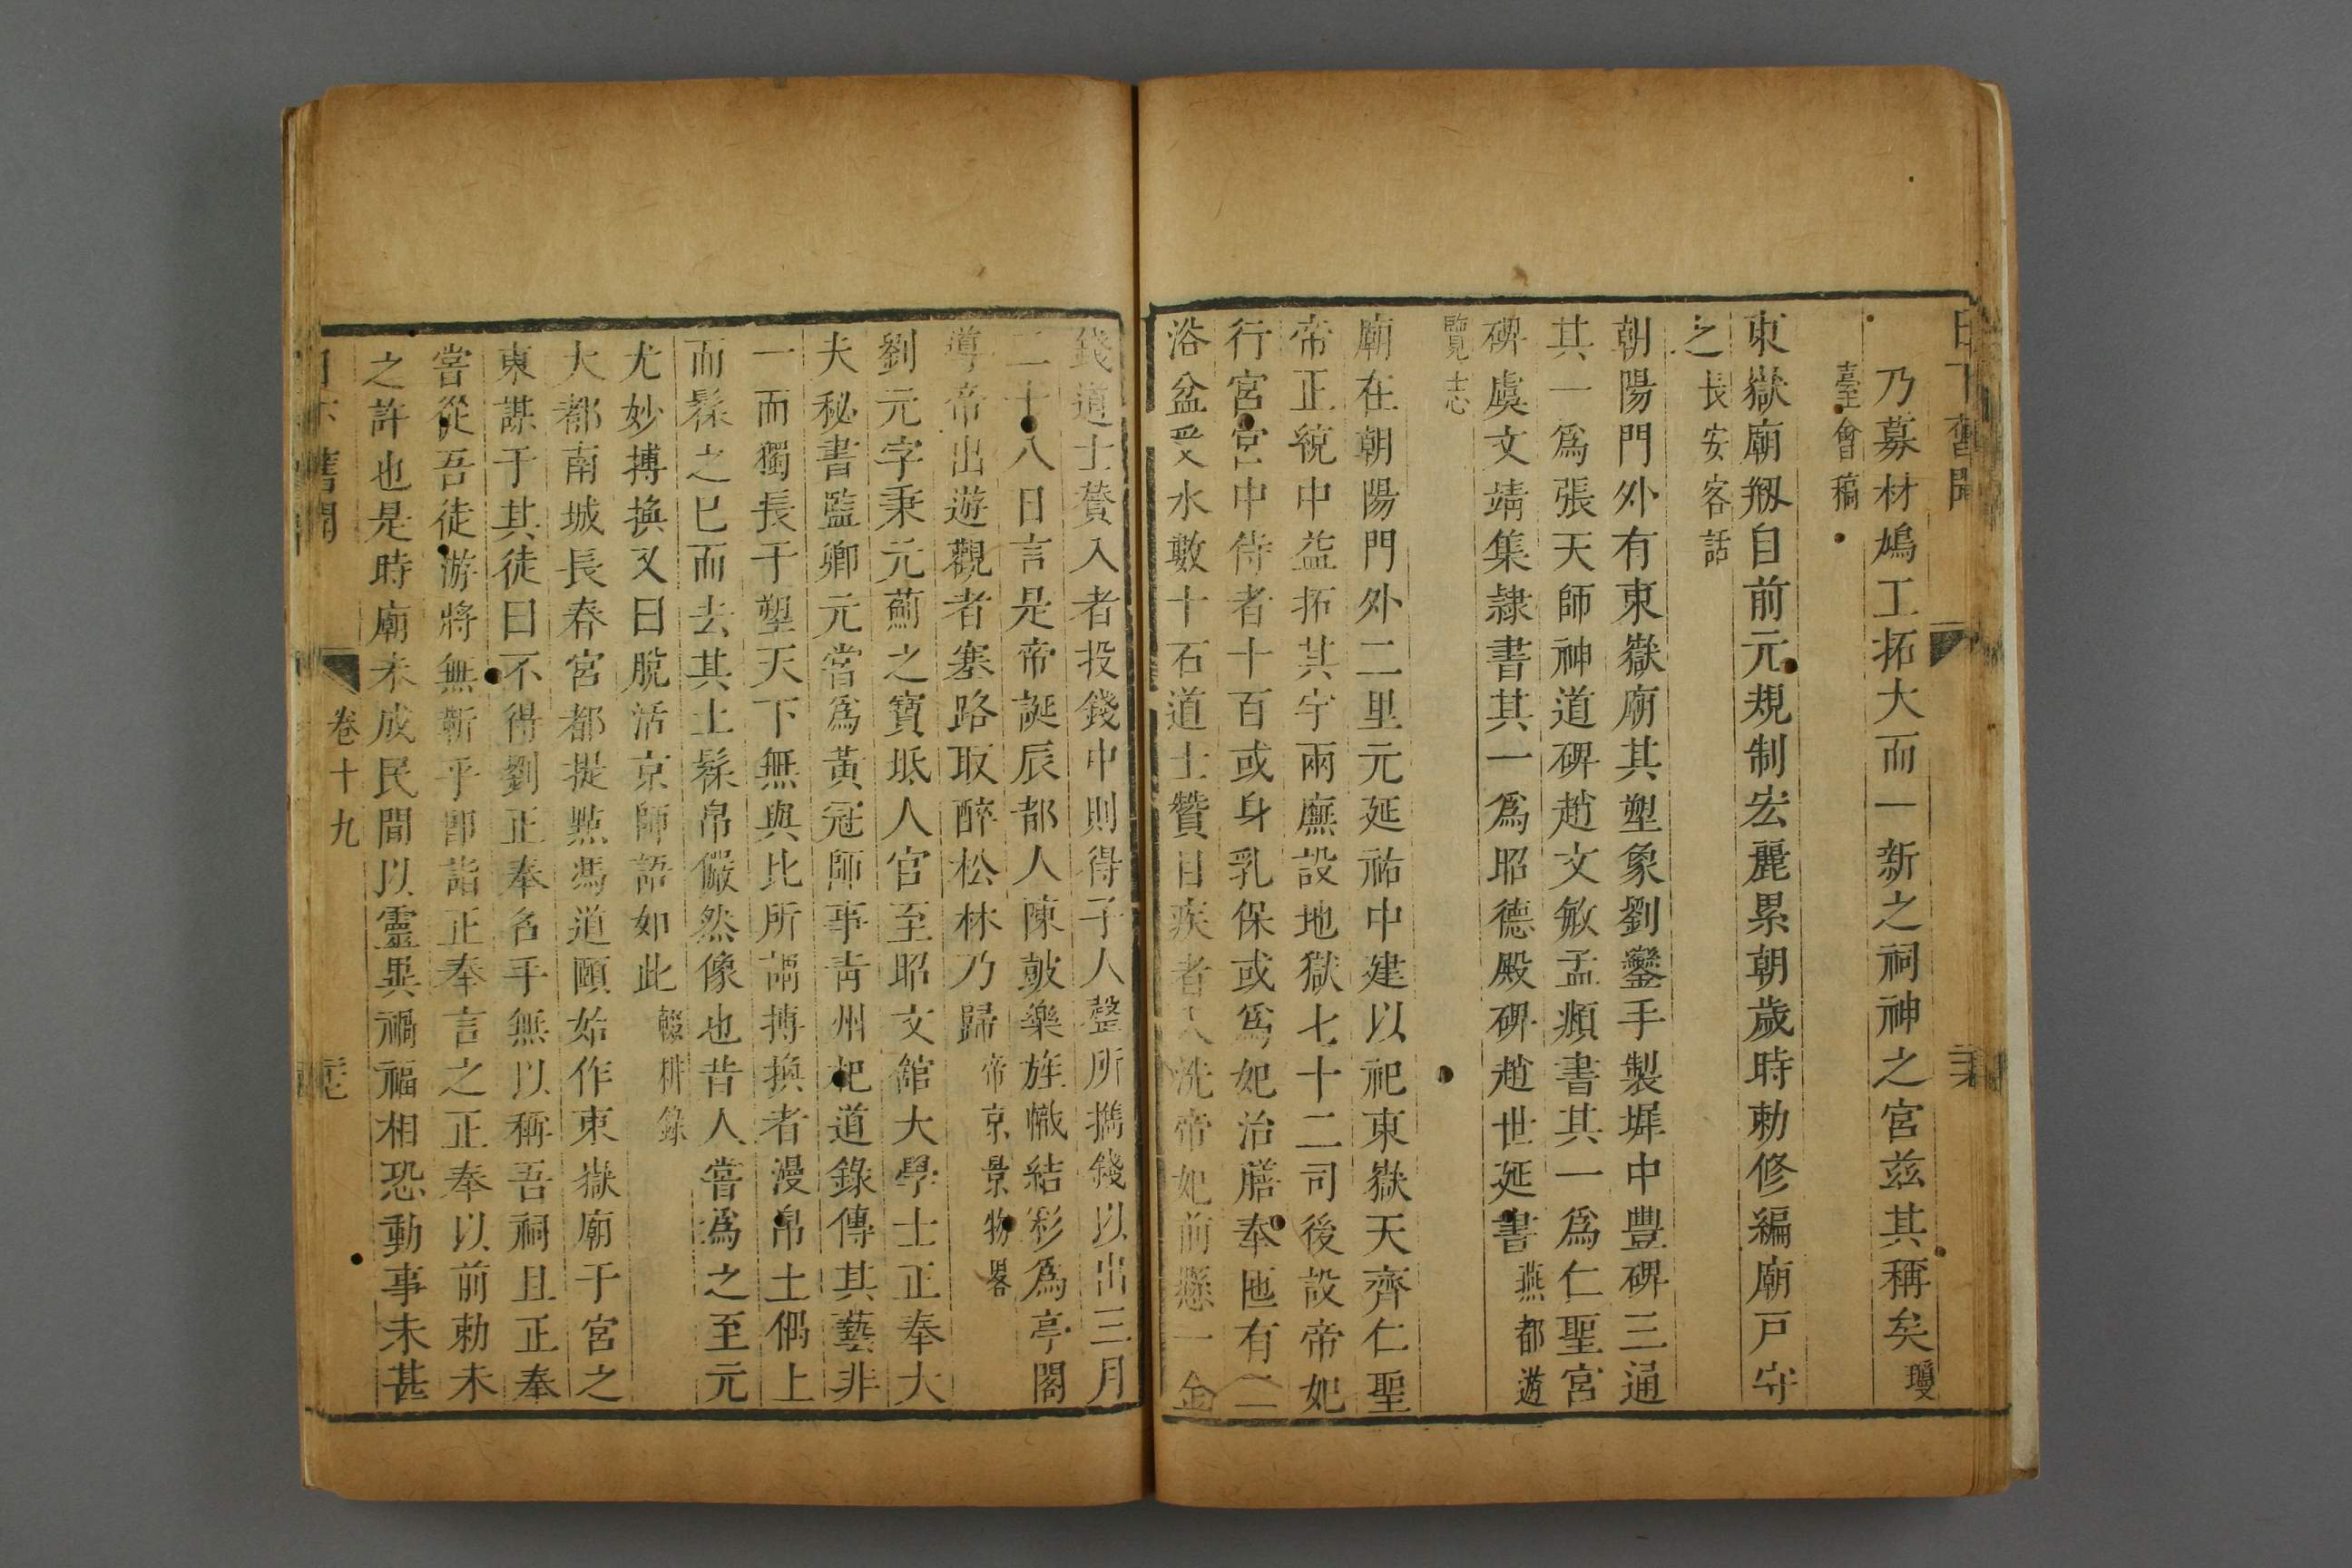 日下舊聞
乃募材鳩工拓大而一新之祠神之宮兹其稱矣瓊
臺會稿
東嶽廟剏自前元規制宏麗累朝歲時勅修編廟戸守
之長安客話
朝陽門外有東嶽廟其塑象劉鑾手製墀中豐碑三通
其一爲張天師神道碑趙文敏孟頫書其一爲仁聖宮
碑虞文靖集隷書其一爲昭德殿碑趙世延書燕都遊
覽志
廟在朝陽門外二里元延祐中建以祀東嶽天齊仁聖
帝正統中益拓其宇兩廡設地獄七十二司後設帝妃
行宮宮中侍者十百或身乳保或爲妃治膳奉匜有二
浴盆受水數十石道士贊目疾者入洗帝妃前懸一金
錢道士贊入者投錢中則得子人罄所擕錢以出三月
二十八日言是帝誕辰都人陳皷樂旌幟結彩爲亭閣
導帝出遊觀者塞路取醉松林乃歸帝京景物畧
劉元字秉元薊之寶坻人官至昭文館大學士正奉大
夫秘書監卿元嘗爲黃冠師事青州杞道錄傳其藝非
一而獨長于塑天下無與比所謂搏換者漫帛土偶上
而髹之已而去其土髹帛儼然像也昔人嘗爲之至元
尤妙搏換又曰脫活京師語如此輟耕錄
大都南城長春宮都提㸃馮道頤始作東嶽廟于宮之
東謀于其徒曰不得劉正奉名手無以稱吾祠且正奉
嘗從吾徒游將無靳乎卽詣正奉言之正奉以前勅未
之許也是時廟未成民間以靈異禍福相恐動事未甚
日下舊聞
卷十九